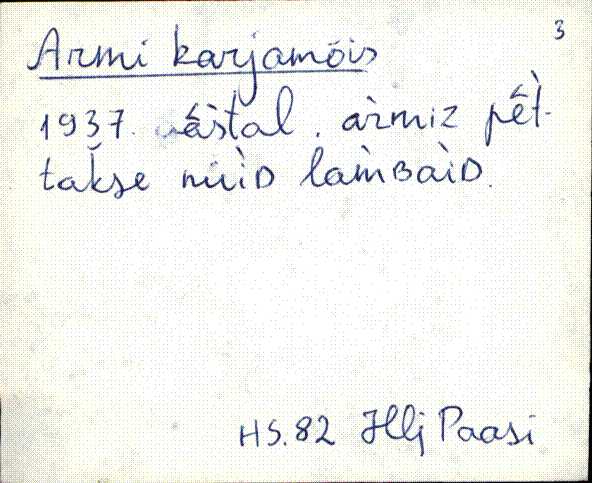 3
Armi karjamõis
1937. àstal. àrmiz pêt̀-
takse nùiD lam̀ʙàiD.
HS. 82 Hlj Paasi